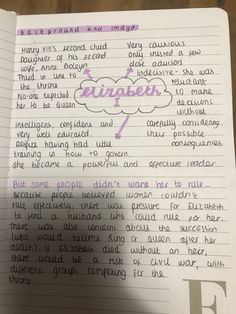 background and image
Henry VIII's second child
daughter of his second
wife, Anne Boleyn
Third in line to
the throne
No-one expected
her to be Queen
Very cautious
only trusted a few
close advisors
Indecisive - she was
reluctant
to make
decisions
without
carefully considering
their possible
consequences
elizabeth
I
intelligent, confident and
very well educated.
Despite having had little
training in how to govern
she became a powerful and effective leader
But some people didn't want her to rule...
Because people believed women couldn't
rule effectively, there was pressure for Elizabeth
to find a husband who could rule for her.
There was also concerns about the succession
(who would become King or queen after her
death). If Elizabeth died without an heir,
there would be a risk of civil war, with
different groups competing for the
throne.
E